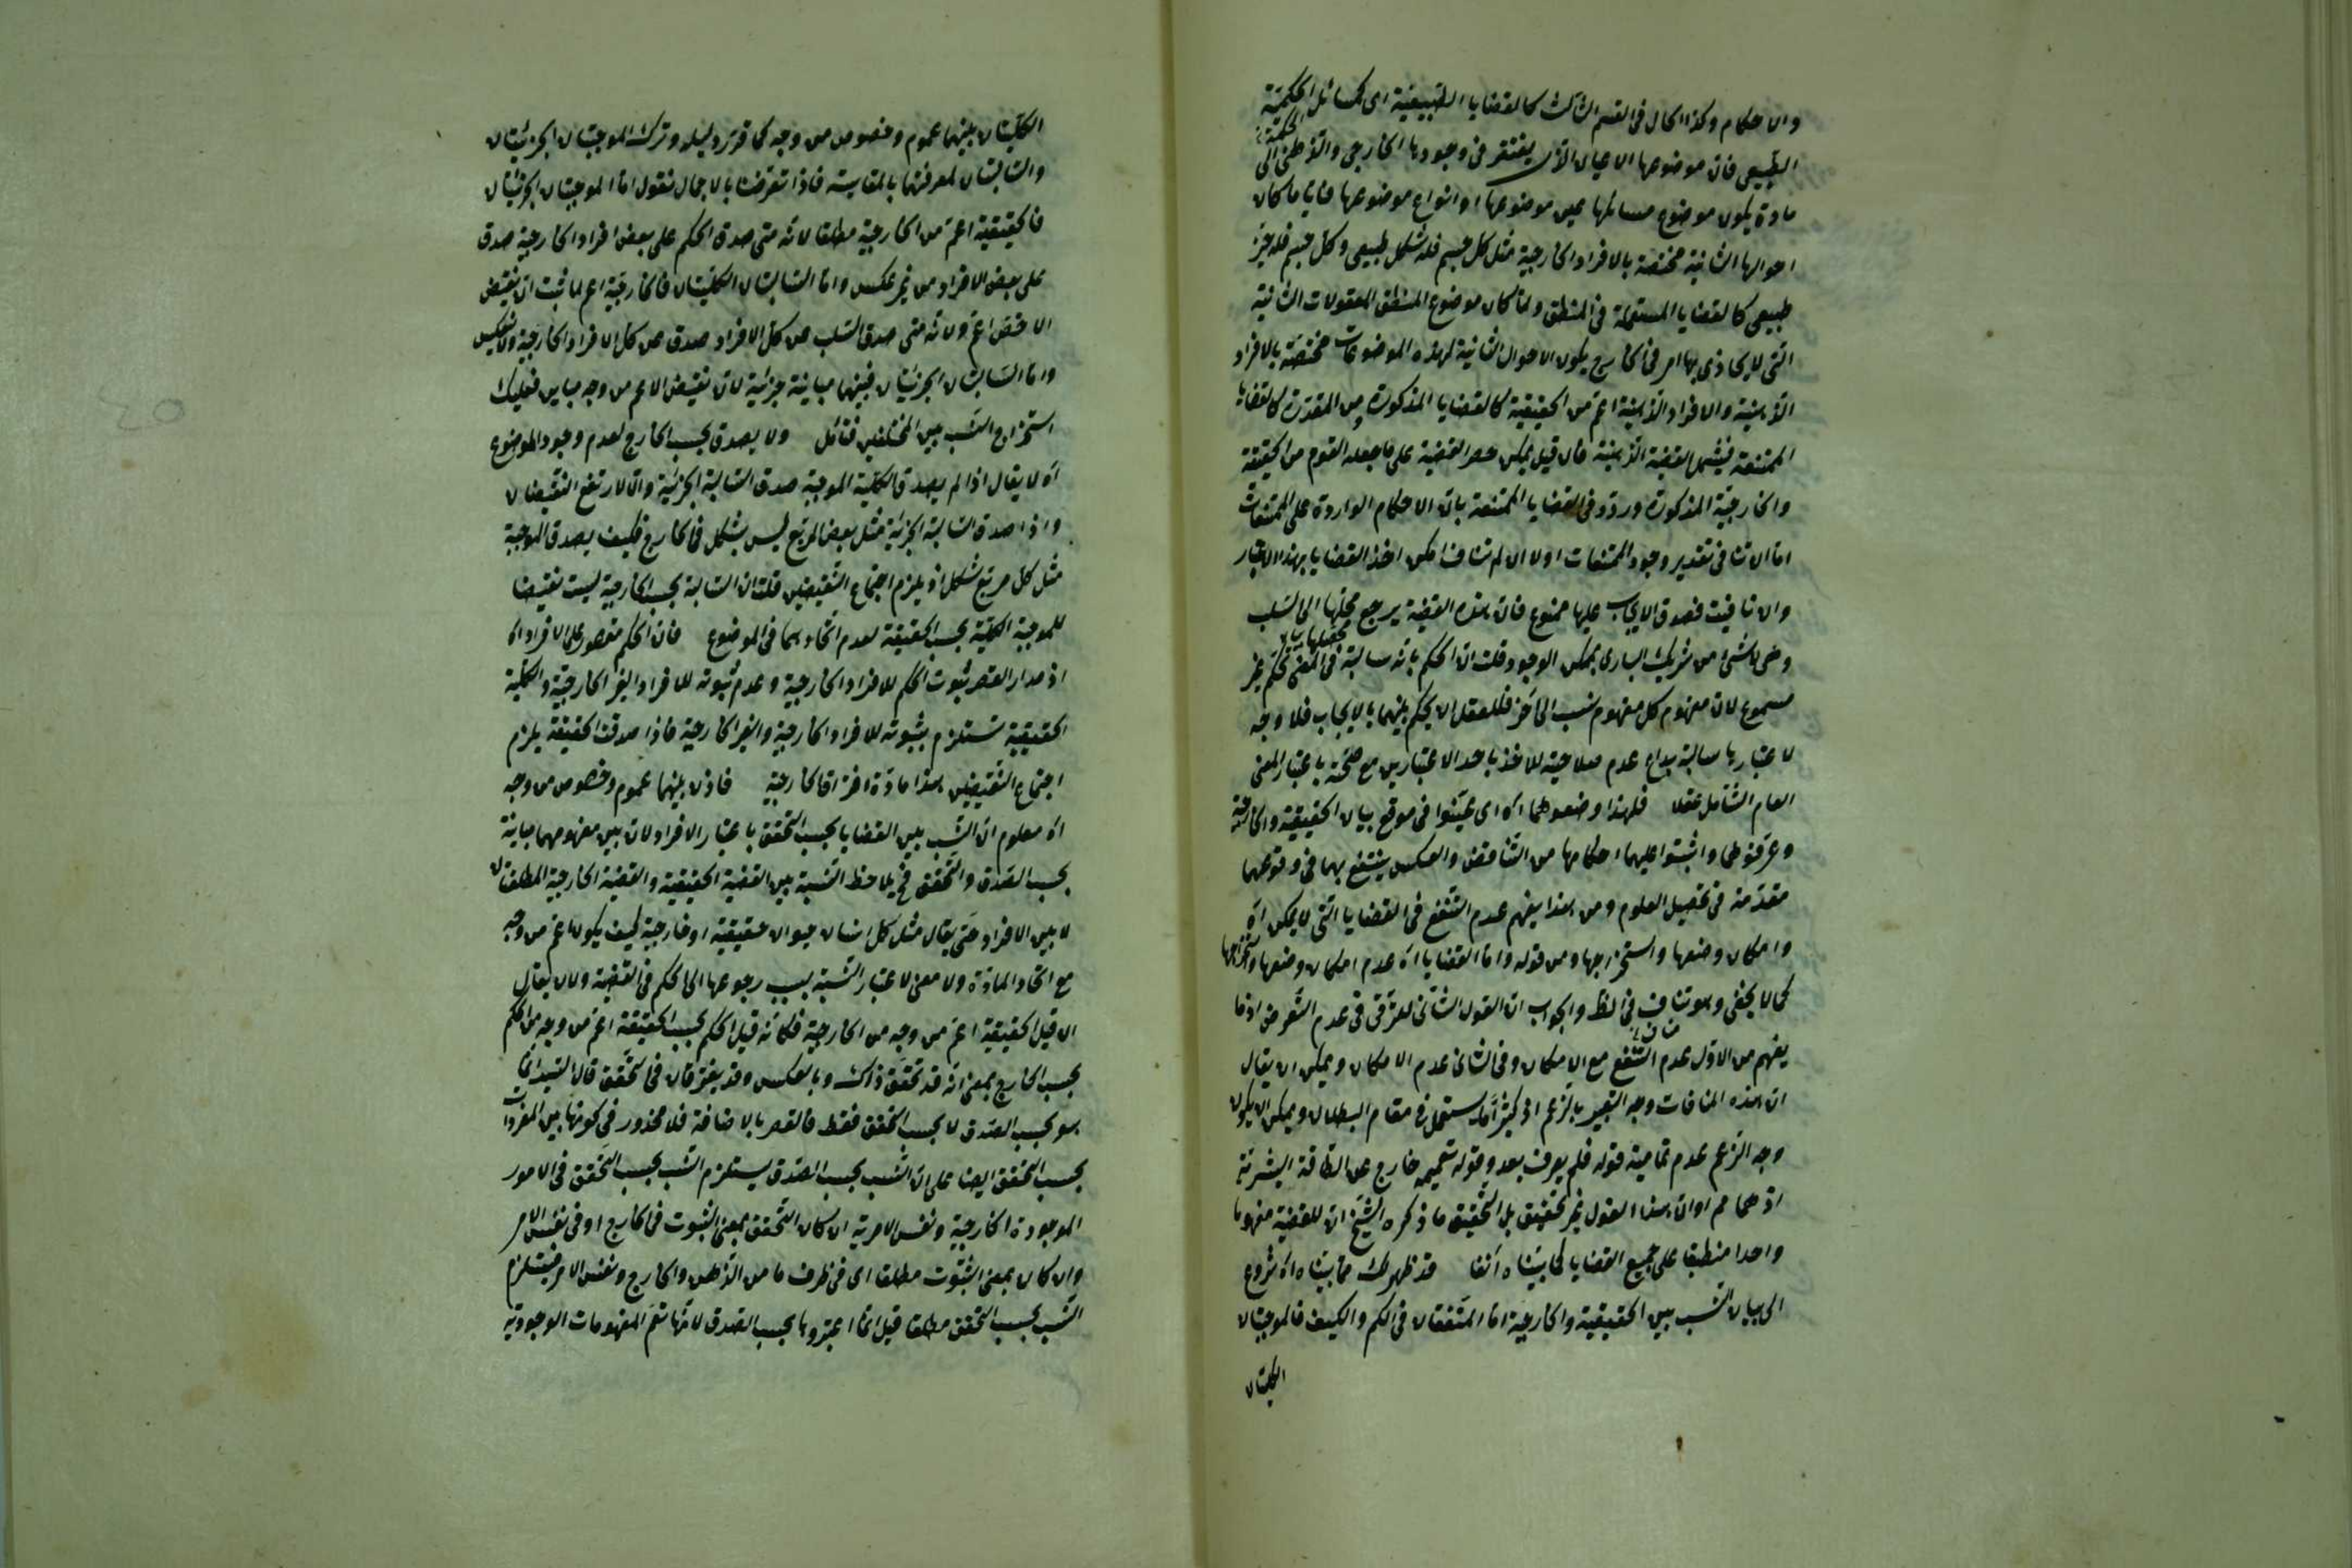 والاحكام وكذا الحال فى القسم الثالث كالقضايا الطبيعية اى كمسائل الحكمية
الطبيعى فان موضوعها الاعيان التى يفتقر فى وجودها الخارجى والذهنى الى
الحكمة
مادة يكون موضوع مسائلها عين موضوعها او انواع موضوعها فايا ما كان
احوالها الثانية مختصة بالافراد الخارجية مثل كل جسم فله شكل طبيعى وكل جسم فله حيّز
طبيعى كالقضايا المستعملة فى المنطق ولما كان موضوع المنطق المعقولات الثانية
التى لا يحاذى بها امر فى الخارج يكون الاحوال الثانية لهذه الموضوعات مختصة بالافراد
الذهنية والافراد الذهنية اعم من الحقيقية كالقضايا المذكورة ومن المقدرة كالقضايا
الممتنعة فيشمل القضية الذهنية فان قيل يمكن حصر القضية على ما جعله القوم من الحقيقة
والخارجية المذكورة وردّ فى القضايا الممتنعة بان الاحكام الواردة على الممتنعات
اما ان تنافى تقدير وجود الممتنعات او لا ان لم تناف امكن اخذ القضايا بهذا الاعتبار
وان نافيت فصدق الايجاب عليها ممنوع فان هذه القضية يرجع محصلها الى السلب
وهى لا شئ من شريك البارى بممكن الوجود قلت ان الحكم بانه سالبة فى المعنى تحكم غير
مسموع لان مفهوم كل مفهوم نسب الى آخر فللعقل ان يحكم بينهما بالايجاب فلا وجه
لاعتبارها سالبة بداع عدم صلاحية للاخذ باحد الاعتبارين مع صحته باعتبار المعنى
العام الشامل عقلا فلهذا وضعوهما اه اى عيّنوا فى موقع بيان الحقيقية والخارجية
وعرّفوهما واثبتوا عليهما احكامها من التناقض والعكس ينتفع بهما فى وقوعهما
مقدّمة فى تحصيل العلوم ومن هذا يفهم عدم النفع فى القضايا التى لا يمكن اه
وامكان وضعها واستخراجها ومن قوله واما القضايا اه عدم امكان وضعها واستخراجها
كما لا يخفى وهو تناف فى الظ والجواب ان القول الثانى لعرّقى فى عدم التعرض اذ ما
يفهم من الاول عدم النفع مع الامكان وفى الثانى عدم الامكان ويمكن ان يقال
ان هذه المنافات وجه التعبير بالزعم اذ كثيرا ما يستعمل فى مقام البطلان ويمكن ان يكون
وجه الزعم عدم تمامية قوله فلم يعرف بعد وقوله تتميمه خارج عن الطاقة البشرية
اذ هما مم او ان هذا القول غير تحقيق بل التحقيق ما ذكره الشيخ ان للقضية مفهوما
واحدا منطبقا على جميع القضايا كما بيّناه آنفا قد ظهر لك مما بيّناه اه شروع
الى بيان النسب بين الحقيقية والخارجية اما المتفقتان فى الكم والكيف فالموجبتان
الكليتان
الكليتان بينهما عموم وخصوص من وجه كما قرّر دليله وترك الموجبتان الجزئيتان
والسالبتان لمعرفتها بالمقايسة فاذا تعرضنا بالاجمال نقول اما الموجبتان الجزئيتان
فالحقيقية اعم من الخارجية مطلقا لانه متى صدق الحكم على بعض افراد الخارجية صدق
على بعض الافراد من غير عكس واما السالبتان الكليتان فالخارجية اعم لما ثبت ان نقيض
الاخص اعم ولانه متى صدق السلب عن كل الافراد صدق عن كل الافراد الخارجية ولا ينعكس
واما السالبتان الجزئيتان فبينهما مباينة جزئية لان نقيض الاعم من وجه مباين فعليك
استخراج النسب بين المختلفين فتامل ولا يصدق بحسب الخارج لعدم وجود الموضوع
اه لا يقال اذا لم يصدق الكلية الموجبة صدق السالبة الجزئية والا لارتفع النقيضان
واذا صدق السالبة الجزئية مثل بعض المربع ليس بشكل فى الخارج فكيف يصدق الموجبة
مثل كل مربع شكل اذ يلزم اجتماع النقيضين قلت ان السالبة بحسب الخارجية ليست نقيضا
للموجبة الكلية بحسب الحقيقة لعدم اتحادهما فى الموضوع فان الحكم مقصور على الافراد اه
اذ مدار القصر ثبوت الحكم للافراد الخارجية وعدم ثبوته للافراد الغير الخارجية والكلية
الحقيقية تستلزم بثبوته للافراد الخارجية والغير الخارجية فاذا صدقت الحقيقة يلزم
اجتماع النقيضين هذا مادة افتراق الخارجية فاذن بينهما عموم وخصوص من وجه
اه معلوم ان النسب بين القضايا بحسب التحقق باعتبار الافراد لان بين مفهومهما مباينة
بحسب الصدق والتحقق فح يلاحظ النسبة بين القضية الحقيقية والقضية الخارجية المطلقتان
لا بين الافراد حتى يقال مثل كل انسان حيوان حقيقية او خارجية كيف يكون اعم من وجه
مع اتحاد المادة ولا معنى لاعتبار النسبة بسبب رجوعها الى الحكم فى القضية ولان يقال
ان قيل الحقيقية اعم من وجه من الخارجية فكانه قيل الحكم بحسب الحقيقة اعم من وجه من الحكم
بحسب الخارج بمعنى انه قد تحقق ذاك وبالعكس وقد يفترقان فى التحقق قال السيد انما
هو بحسب الصدق لا بحسب التحقق فقط فالقصر بالاضافة فلا محذور فى كونها بين المفردات
بحسب التحقق ايضا على ان النسب بحسب الصدق يستلزم النسب بحسب التحقق فى الامور
الموجودة الخارجية ونفس الامرية ان كان التحقق بمعنى الثبوت فى الخارج او فى نفس الامر
وان كان بمعنى الثبوت مطلقا اى فى ظرف ما من الذهن والخارج ونفس الامر فيستلزم
النسب بحسب التحقق مطلقا قيل انما اعتبروها بحسب الصدق لانها تعم المفهومات الوجودية